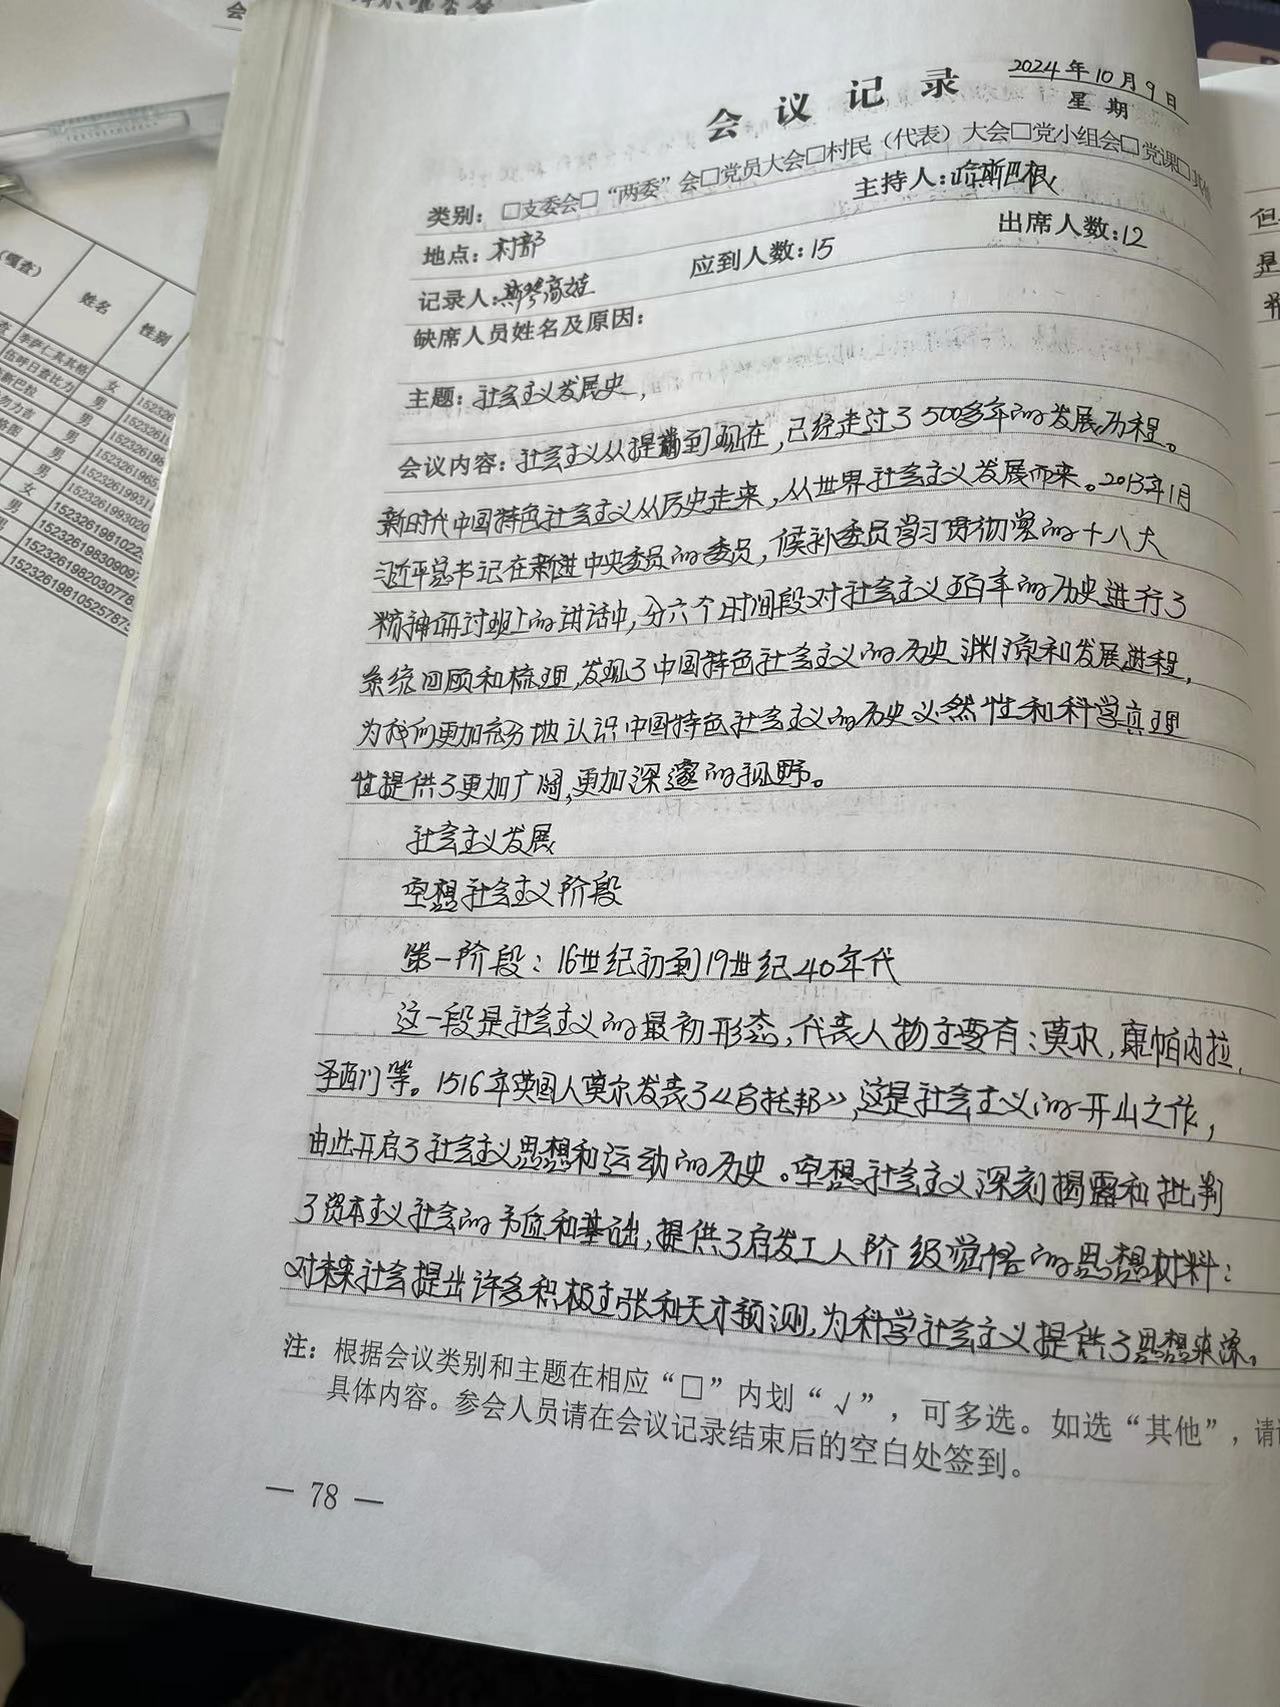 会议记录
2024年10月9日
星期
类别：□支委会□“两委”会□党员大会□村民（代表）大会□党小组会□党课□其他
地点：村部
主持人：哈斯巴根
记录人：斯琴高娃
应到人数：15
出席人数：12
缺席人员姓名及原因：
主题：社会主义发展史，
会议内容：社会主义从提出到现在，已经走过了500多年的发展历程。
新时代中国特色社会主义从历史走来，从世界社会主义发展而来。2013年1月
习近平总书记在新进中央委员的委员，候补委员学习贯彻党的十八大
精神研讨班上的讲话中，分六个时间段对社会主义五百年的历史进行了
系统回顾和梳理，发现了中国特色社会主义的历史渊源和发展进程，
为我们更加充分地认识中国特色社会主义的历史必然性和科学真理
性提供了更加广阔，更加深邃的视野。
社会主义发展
空想社会主义阶段
第一阶段：16世纪初到19世纪40年代
这一段是社会主义的最初形态，代表人物主要有：莫尔，康帕内拉，
圣西门等。1516年英国人莫尔发表了《乌托邦》，这是社会主义的开山之作，
由此开启了社会主义思想和运动的历史。空想社会主义深刻揭露和批判
了资本主义社会的和基础，提供了启发工人阶级觉悟的思想材料：
对未来社会提出许多积极主张和天才预测，为科学社会主义提供了思想来源。
注：根据会议类别和主题在相应“□”内划“√”，可多选。如选“其他”，请
具体内容。参会人员请在会议记录结束后的空白处签到。
— 78 —
（嘎查）
姓名
性别
女
男
152326